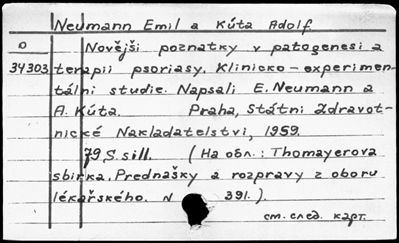 Neumann Emil a Kúta Adolf.
O Novější poznatky v patogenesi a
34303 terapii psoriasy. Klinicko-experimen-
tální studie. Napsali E. Neumann a
A. Kúta. Praha, Státní Zdravot-
nické Nakladatelství, 1959.
79 S. sill. (На обл.: Thomayerova
sbírka. Prednašky a rozpravy z oboru
lékařského. N 391.).
см. след. карт.